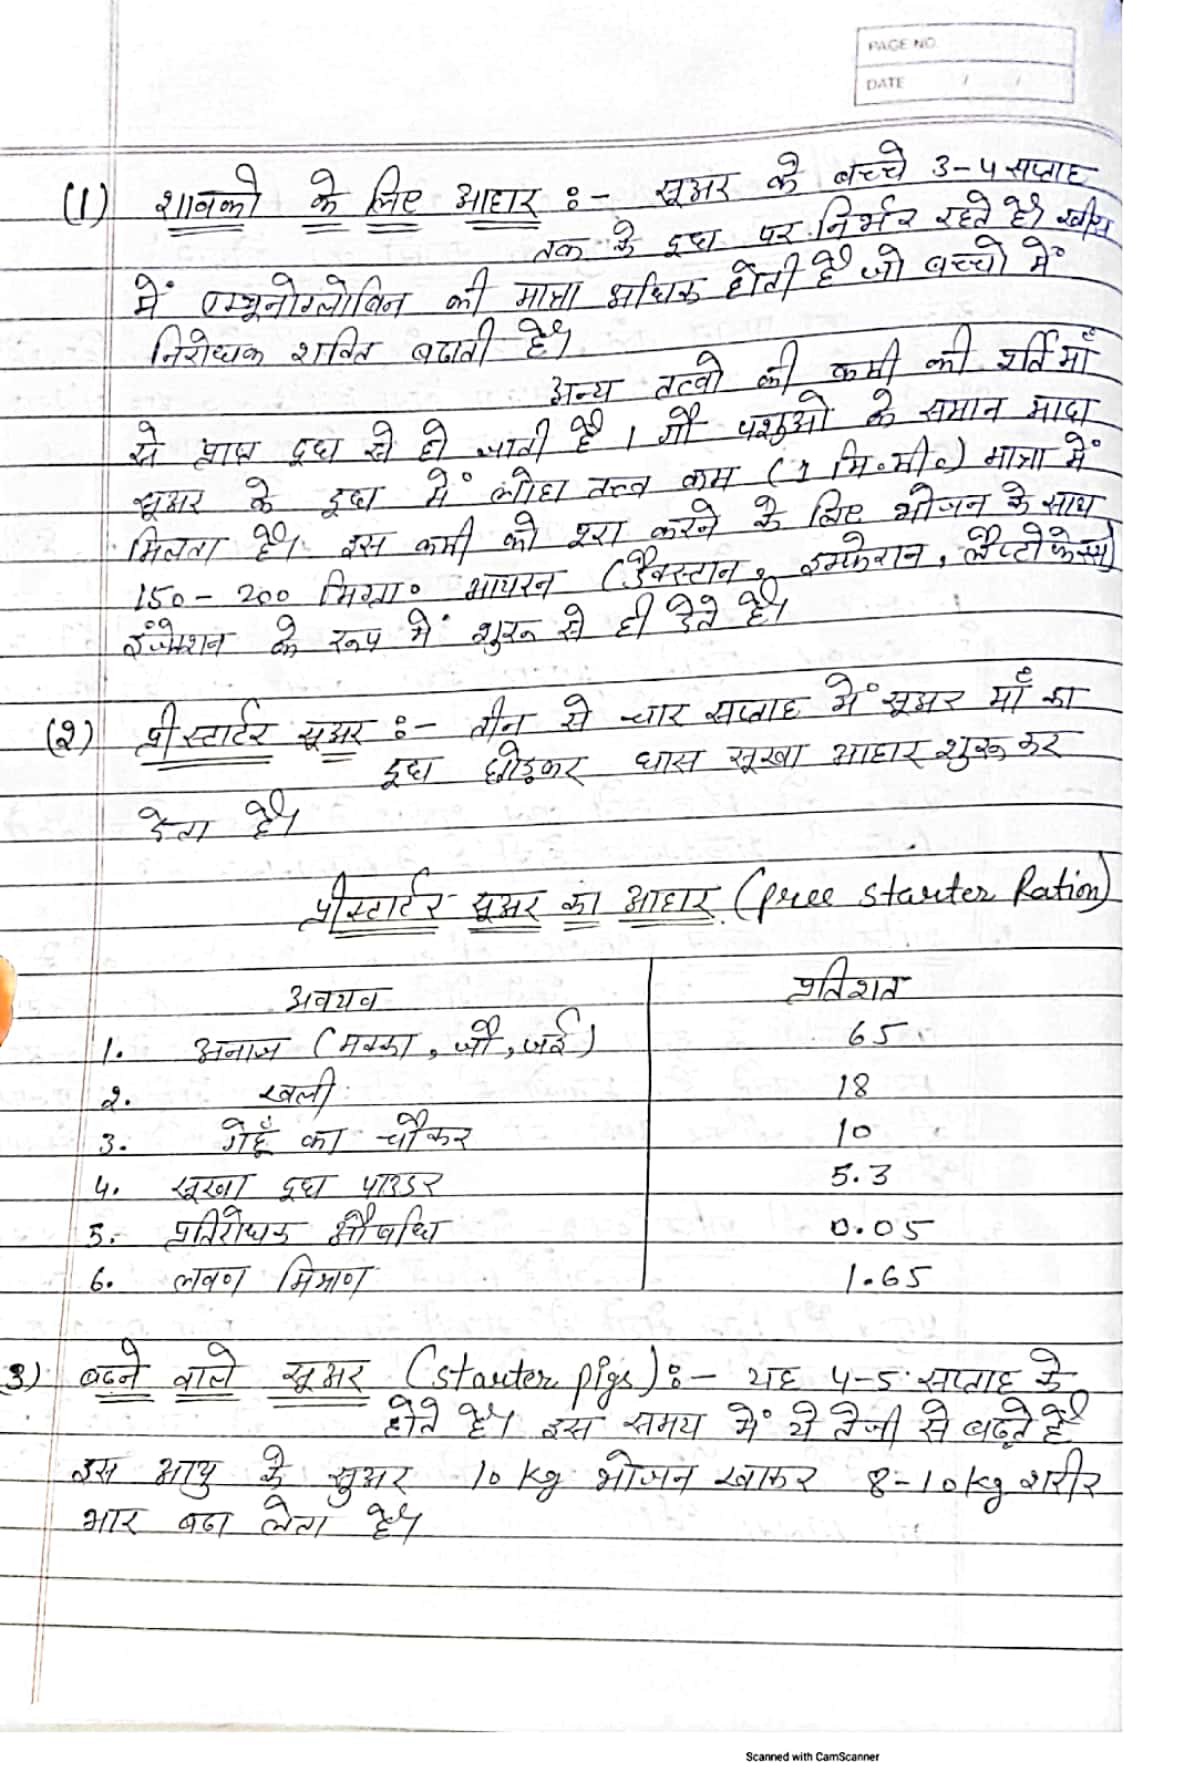 PAGE NO.
DATE / /
(1) शावको के लिए आहार :- सूअर के बच्चे 3-4 सप्ताह
तक के दूध पर निर्भर रहते है। खीस
में एम्यूनोग्लोबिन की मात्रा अधिक होती है जो बच्चो में
निरोधक शक्ति बढाती है।
अन्य तत्वो की कमी की पूर्ति माँ
से प्राप्त दूध से हो जाती है। गौ पशुओ के समान मादा
सूअर के दूध में लोहा तत्व कम (1 मि.मी.) मात्रा में
मिलता है। इस कमी को पूरा करने के लिए भोजन के साथ
150-200 मिग्रा. आयरन (डैक्स्टान, इम्फेरान,
इंजेक्शन के रूप में शुरू से ही देते है।
(2) प्रीस्टार्टर सूअर :- तीन से चार सप्ताह में सूअर माँ का
दूध छोड़कर घास सूखा आहार शुरू कर
देता है।
प्रीस्टार्टर सूअर का आहार (pree starter Ration)
अवयव प्रतिशत
1. अनाज (मक्का, जौ, जई) 65
2. खली 18
3. गेहूँ का चौकर 10
4. सूखा दूध पाउडर 5.3
5. प्रतिरोधक औषधि 0.05
6. लवण मिश्रण 1.65
3) बढने वाले सूअर (starter pigs) :- यह 4-5 सप्ताह के
होते है। इस समय में ये तेजी से बढ़ते है
इस आयु के सुअर 10 kg भोजन खाकर 8-10kg शरीर
भार बढा लेता है।
Scanned with CamScanner